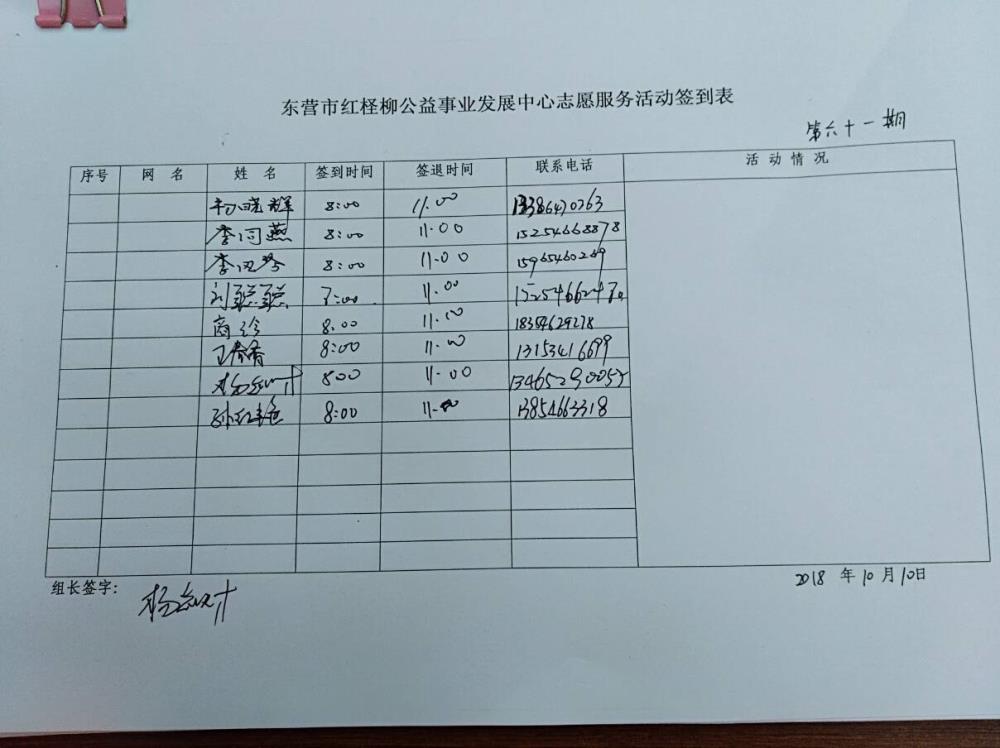 东营市红柽柳公益事业发展中心志愿服务活动签到表
第六十一期
序号 网 名 姓 名 签到时间 签退时间 联系电话 活动情况
晓辉 8:00 11.00
李闫燕 8:00 11.00 15254668878
李凤琴 8:00 11.00 15965460269
刘聪聪 7:00 11.00
商珍 8.00 11.00 18354629278
王春香 8:00 11.00 13153416699
800 11.00
孙红艳 8:00 11.00 13854663318
组长签字:
2018 年 10 月 10日